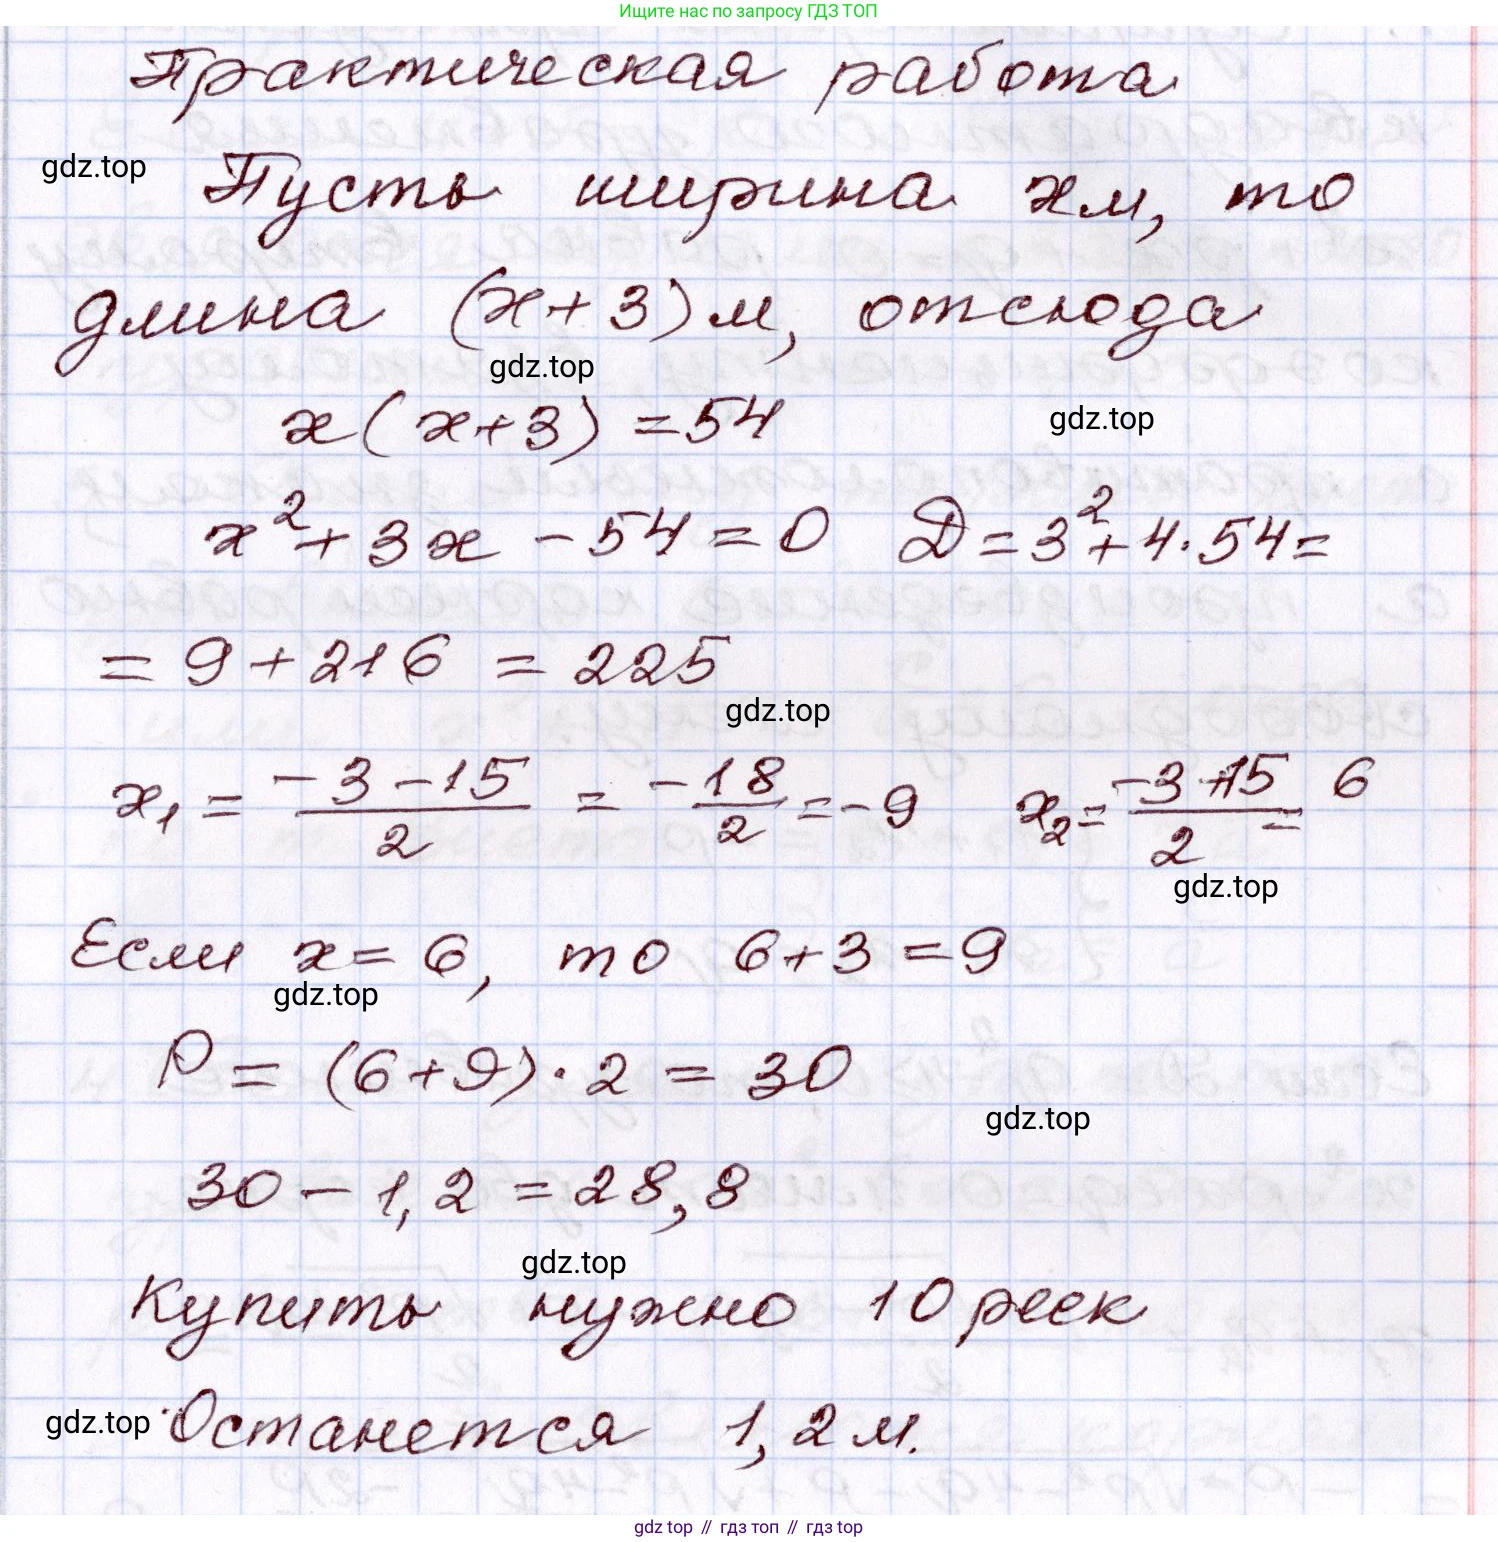 Ищите нас по запросу ГДЗ ТОП
Практическая работа
gdz.top
Пусть ширина x м, то
длина (x+3) м, отсюда
gdz.top
x(x+3) = 54
gdz.top
x² + 3x - 54 = 0 D = 3² + 4·54 =
= 9 + 216 = 225
gdz.top
x₁ = (-3-15)/2 = -18/2 = -9 x₂ = (-3+15)/2 = 6
gdz.top
Если x = 6, то 6+3 = 9
gdz.top
P = (6+9)·2 = 30
gdz.top
30 - 1,2 = 28,8
gdz.top
Купить нужно 10 реек
gdz.top
Останется 1,2 м.
gdz top // гдз топ // gdz top